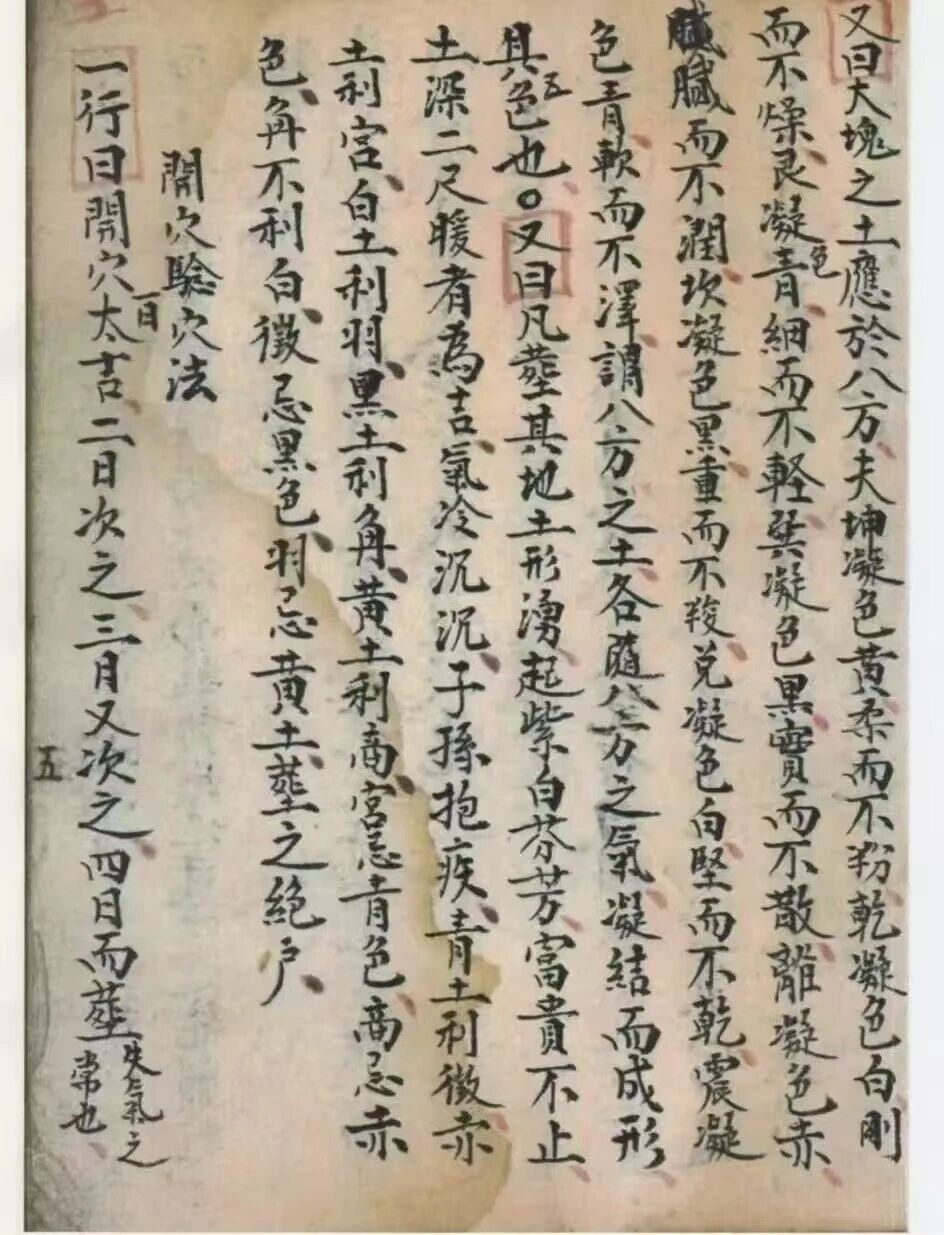 又曰大塊之土應於八方、夫坤凝色黃柔而不粉、乾凝色白剛
而不燥、艮凝青色、細而不輕、巽凝色黑、實而不散、離凝色赤
膩而不潤、坎凝色黑重而不、兌凝色白堅而不乾、震凝
色青、軟而不澤、謂八方之土各隨八方之氣凝結而成形
具五色也、〇又曰凡塟其地土形湧起紫白芬芳、富貴不止、
土深二尺暖者為吉、氣冷沉沉、子孫抱疾、青土利徵、赤
土利宮、白土利羽、黑土利角、黃土利商、宮忌青色、商忌赤
色、角不利白、徵忌黑色、羽忌黃土、塟之絕戶、
開穴驗穴法
一行曰開穴一日太吉、二日次之、三月又次之、四日而塟失氣之常也、
五